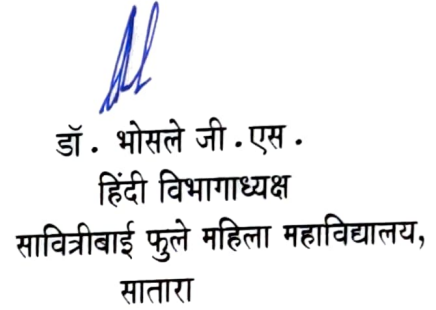 डॉ. भोसले जी.एस.
हिंदी विभागाध्यक्ष
सावित्रीबाई फुले महिला महाविद्यालय,
सातारा